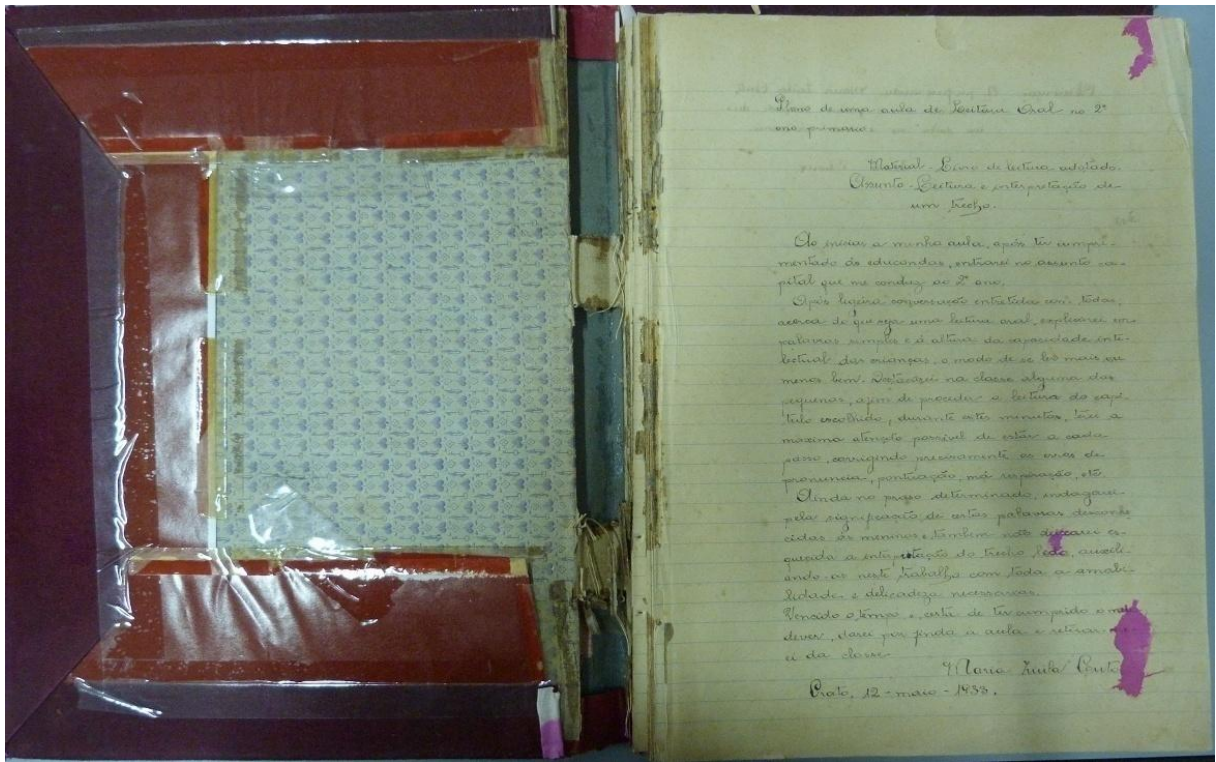 Plano de uma aula de Leitura Oral no 2º
ano primario.
Material - Livro de leitura adotado.
Assunto - Leitura e interpretação de
um trecho.
Ao iniciar a minha aula, após ter cumpri-
mentado as educandas, entrarei no assunto ca-
pital que me conduz ao 2º ano.
Após ligeira conversação entretida com todas,
acerca do que seja uma leitura oral, explicarei em
palavras simples e á altura da capacidade inte-
lectual das crianças, o modo de se ler mais ou
menos bem. Destacarei na classe alguma das
pequenas, afim de proceder a leitura do capi-
tulo escolhido, durante estes minutos, terei a
maxima atenção possivel de estar a cada
passo, corrigindo precisamente os erros de
pronuncia, pontuação, má respiração, etc.
Ainda no prazo determinado, indagarei
pela significação de certas palavras desconhe
cidas, ás meninas, tambem não deixarei es-
quecida a interpretação do trecho lido, auxili-
ando-as neste trabalho com toda a amabi-
lidade e delicadeza necessarias.
Vencido o tempo e, certa de ter cumprido o meu
dever, darei por finda a aula e retirar-me-
ei da classe.
Maria Couto
Crato, 12 - maio - 1933.